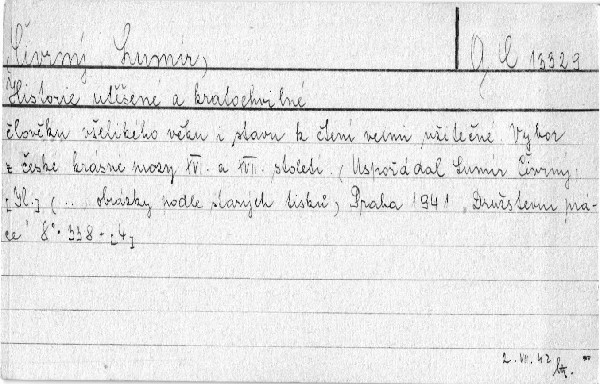 Čivrný Lumír, 
Q C 15329
Historie utěšené a kratochvilné
člověku všelikého věku i stavu k čtení velmi užitečné. Výbor
z české krásné prózy XV. a XVI. století. (Uspořádal Lumír Čivrný,
(.. obrázky podle starých tisků) Praha 1941, Družstevní prá-
ce 8°. 338-[4]
2. VII. 42